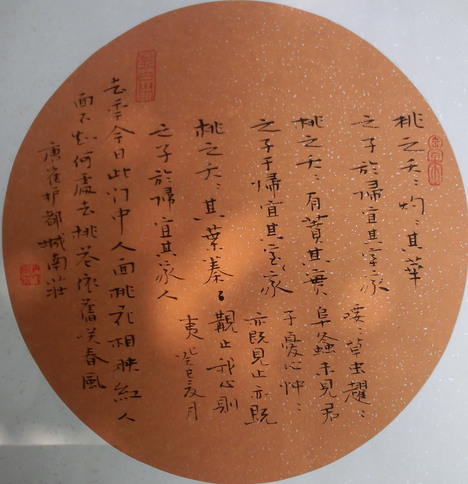 桃之夭:灼:其華
之子於歸宜其室家
桃之夭:有蕡其實
之子于歸宜其室家
桃之夭:其葉蓁:
之子於歸宜其家人
喓:草虫趯:
阜螽未見君
子憂心忡:
亦既見止亦既
觀止我心則
夷癸巳夏月
去年今日此门中人面桃花相映紅人
面不知何處去桃花依舊咲春風
唐崔护都城南莊